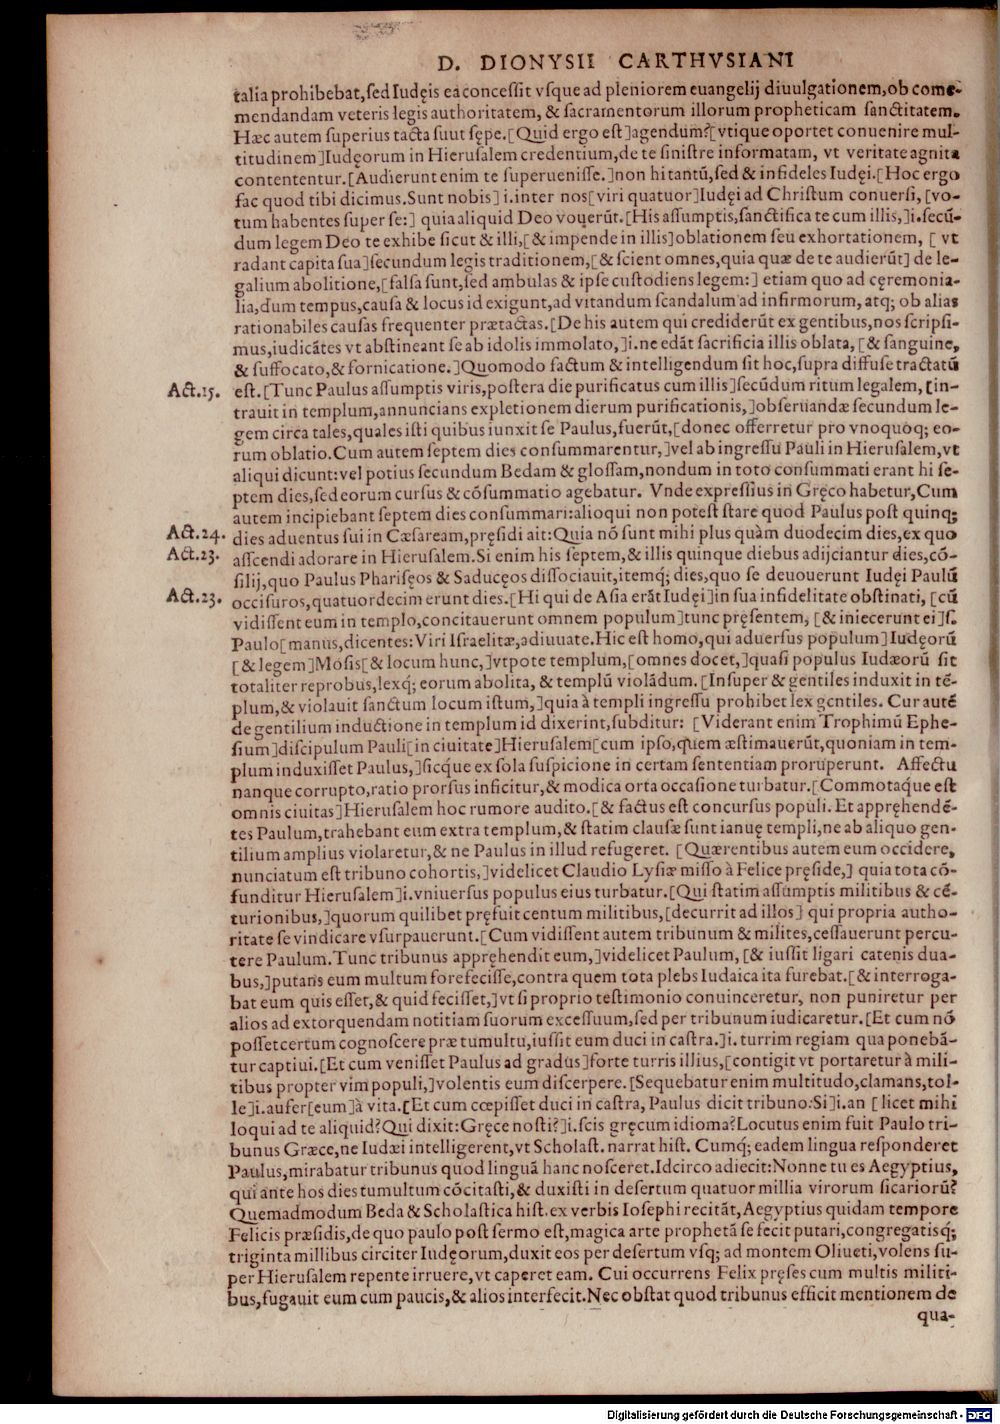 D. DIONYSII CARTHVSIANI
talia prohibebat, sed Iudęis ea concessit vsque ad pleniorem euangelij diuulgationem, ob com̃e-
mendandam veteris legis authoritatem, & sacramentorum illorum propheticam sanctitatem.
Hæc autem superius tacta suut sępe. [Quid ergo est] agendum? [vtique oportet conuenire mul-
titudinem] Iudęorum in Hierusalem credentium, de te sinistre informatam, vt veritate agnita
contententur. [Audierunt enim te superuenisse.] non hi tantũ, sed & infideles Iudęi. [Hoc ergo
fac quod tibi dicimus. Sunt nobis] i. inter nos [viri quatuor] Iudęi ad Christum conuersi, [vo-
tum habentes super se:] quia aliquid Deo vouerũt. [His assumptis, sanctifica te cum illis,] i. secũ-
dum legem Deo te exhibe sicut & illi, [& impende in illis] oblationem seu exhortationem, [vt
radant capita sua] secundum legis traditionem, [& scient omnes, quia quæ de te audierũt] de le-
galium abolitione, [falsa sunt, sed ambulas & ipse custodiens legem:] etiam quo ad cęremonia-
lia, dum tempus, causa & locus id exigunt, ad vitandum scandalum ad infirmorum, atq; ob alias
rationabiles causas frequenter prætactas. [De his autem qui crediderũt ex gentibus, nos scripsi-
mus, iudicãtes vt abstineant se ab idolis immolato,] i. ne edãt sacrificia illis oblata, [& sanguine,
& suffocato, & fornicatione.] Quomodo factum & intelligendum sit hoc, supra diffuse tractatũ
Act.15. est. [Tunc Paulus assumptis viris, postera die purificatus cum illis] secũdum ritum legalem, [in-
trauit in templum, annuncians expletionem dierum purificationis,] obseruandæ secundum le-
gem circa tales, quales isti quibus iunxit se Paulus, fuerũt, [donec offerretur pro vnoquoq; eo-
rum oblatio. Cum autem septem dies consummarentur,] vel ab ingressu Pauli in Hierusalem, vt
aliqui dicunt: vel potius secundum Bedam & glossam, nondum in toto consummati erant hi se-
ptem dies, sed eorum cursus & cõsummatio agebatur. Vnde expressius in Gręco habetur, Cum
autem incipiebant septem dies consummari: alioqui non potest stare quod Paulus post quinq;
Act.24. dies aduentus sui in Cæsaream, pręsidi ait: Quia nõ sunt mihi plus quàm duodecim dies, ex quo
Act.23. asscendi adorare in Hierusalem. Si enim his septem, & illis quinque diebus adijciantur dies, cõ-
silij, quo Paulus Pharisęos & Saducęos dissociauit, itemq́; dies, quo se deuouerunt Iudęi Paulũ
Act.23. occisuros, quatuordecim erunt dies. [Hi qui de Asia erãt Iudęi] in sua infidelitate obstinati, [cũ
vidissent eum in templo, concitauerunt omnem populum] tunc pręsentem, [& iniecerunt ei] s.
Paulo [manus, dicentes: Viri Israelitæ, adiuuate. Hic est homo, qui aduersus populum] Iudęorũ
[& legem] Mosis [& locum hunc,] vtpote templum, [omnes docet,] quasi populus Iudæorũ sit
totaliter reprobus, lexq́; eorum abolita, & templũ violãdum. [Insuper & gentiles induxit in tẽ-
plum, & violauit sanctum locum istum,] quia à templi ingressu prohibet lex gentiles. Cur autẽ
de gentilium inductione in templum id dixerint, subditur: [Viderant enim Trophimũ Ephe-
sium] discipulum Pauli [in ciuitate] Hierusalem [cum ipso, quem æstimauerũt, quoniam in tem-
plum induxisset Paulus,] sicq́ue ex sola suspicione in certam sententiam proruperunt. Affectu
nanque corrupto, ratio prorsus inficitur, & modica orta occasione turbatur. [Commotaq́ue est
omnis ciuitas] Hierusalem hoc rumore audito. [& factus est concursus populi. Et appręhendẽ-
tes Paulum, trahebant eum extra templum, & statim clausæ sunt ianuę templi, ne ab aliquo gen-
tilium amplius violaretur, & ne Paulus in illud refugeret. [Quærentibus autem eum occidere,
nunciatum est tribuno cohortis,] videlicet Claudio Lysiæ misso à Felice pręside,] quia tota cõ-
funditur Hierusalem] i. vniuersus populus eius turbatur. [Qui statim assumptis militibus & cẽ-
turionibus,] quorum quilibet pręfuit centum militibus, [decurrit ad illos] qui propria autho-
ritate se vindicare vsurpauerunt. [Cum vidissent autem tribunum & milites, cessauerunt percu-
tere Paulum. Tunc tribunus appręhendit eum,] videlicet Paulum, [& iussit ligari catenis dua-
bus,] putans eum multum forefecisse, contra quem tota plebs Iudaica ita furebat. [& interroga-
bat eum quis esset, & quid fecisset,] vt si proprio testimonio conuinceretur, non puniretur per
alios ad extorquendam notitiam suorum excessuum, sed per tribunum iudicaretur. [Et cum nõ
posset certum cognoscere præ tumultu, iussit eum duci in castra.] i. turrim regiam qua ponebã-
tur captiui. [Et cum venisset Paulus ad gradus] forte turris illius, [contigit vt portaretur à mili-
tibus propter vim populi,] volentis eum discerpere. [Sequebatur enim multitudo, clamans, tol-
le] i. aufer [eum] à vita. [Et cum cœpisset duci in castra, Paulus dicit tribuno: Si] i. an [licet mihi
loqui ad te aliquid? Qui dixit: Gręce nosti?] i. scis gręcum idioma? Locutus enim fuit Paulo tri-
bunus Græce, ne Iudæi intelligerent, vt Scholast. narrat hist. Cumq́; eadem lingua responderet
Paulus, mirabatur tribunus quod linguã hanc nosceret. Idcirco adiecit: Nonne tu es Aegyptius,
qui ante hos dies tumultum cõcitasti, & duxisti in desertum quatuor millia virorum sicariorũ?
Quemadmodum Beda & Scholastica hist. ex verbis Iosephi recitãt, Aegyptius quidam tempore
Felicis præsidis, de quo paulo post sermo est, magica arte prophetã se fecit putari, congregatisq́;
triginta millibus circiter Iudęorum, duxit eos per desertum vsq; ad montem Oliueti, volens su-
per Hierusalem repente irruere, vt caperet eam. Cui occurrens Felix pręses cum multis militi-
bus, fugauit eum cum paucis, & alios interfecit. Nec obstat quod tribunus efficit mentionem de
qua-
Digitalisierung gefördert durch die Deutsche Forschungsgemeinschaft - DFG